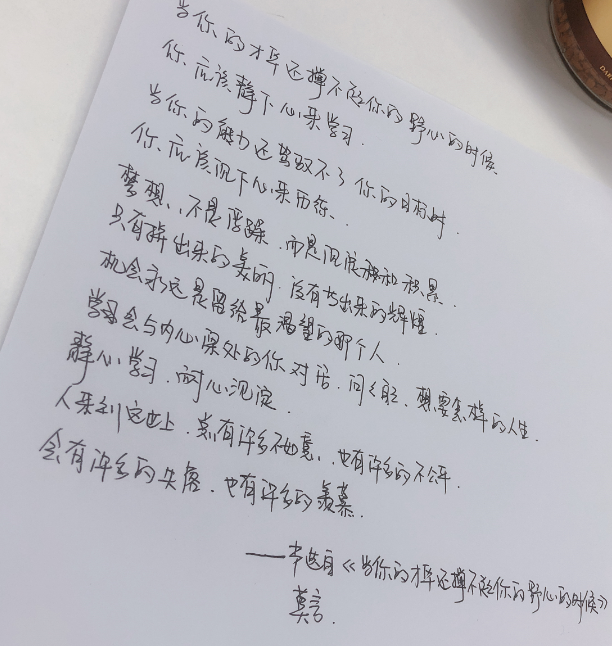 当你的才华还撑不起你的野心的时候
你应该静下心来学习.
当你的能力还驾驭不了你的目标时.
你应该沉下心来历练.
梦想,不是浮躁.而是沉淀和积累.
只有拼出来的美丽,没有等出来的辉煌.
机会永远是留给最渴望的那个人.
学会与内心深处的你对话,问自己,想要怎样的人生.
静心学习.耐心沉淀.
人来到这世上.总有许多不如意,也有许多的不公平.
会有许多的失落.也有许多的羡慕.
——节选自《当你的才华还撑不起你的野心的时候》
莫言.